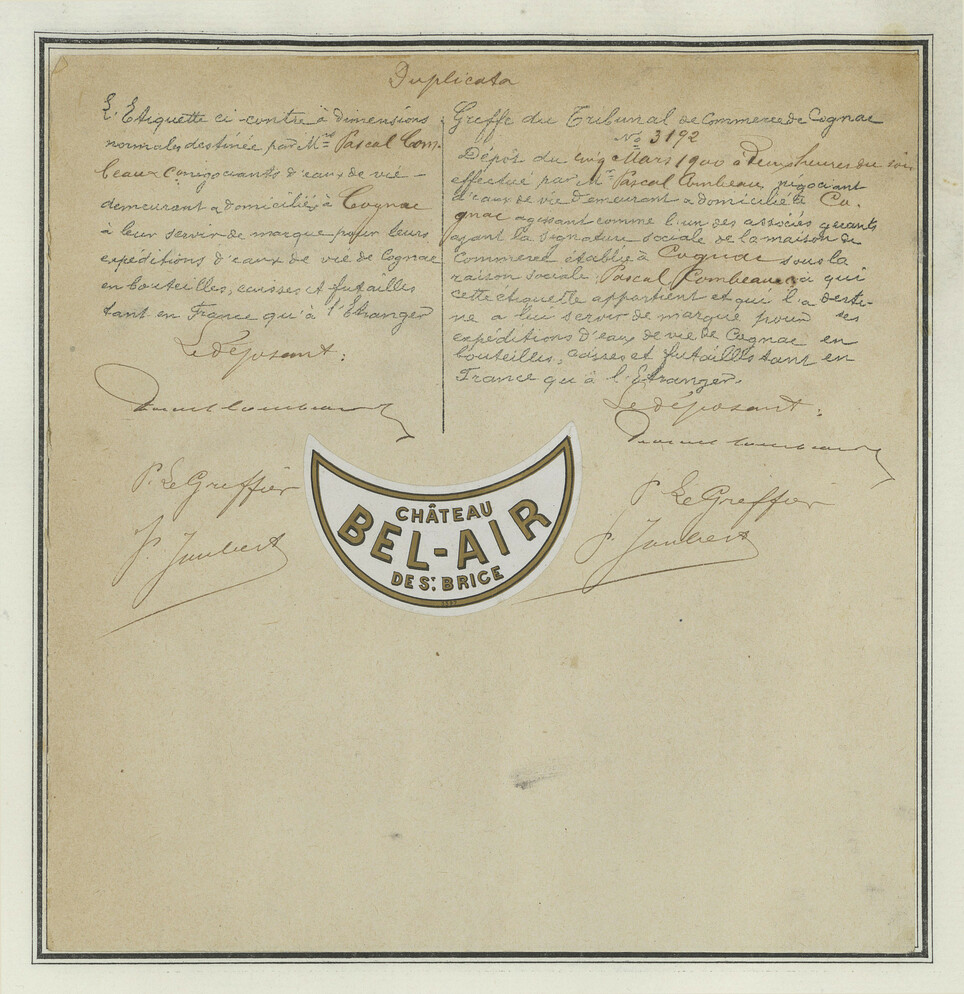 Duplicata
L'Etiquette ci-contre à dimensions
normales destinée par Mrs Pascal Com-
beaux Co négociants d'eaux de vie -
demeurant & domiciliés à Cognac
à leur servir de marque pour leurs
expéditions d'eaux de vie de Cognac
en bouteilles, caisses et futailles
tant en France qu'à l'Etranger
Le déposant:
P. Le Greffier
P. Joubert
Greffe du Tribunal de Commerce de Cognac
No 3192
Dépôt du cinq Mars 1900 à deux heures du soir
effectué par Mr Pascal Combeau, négociant
d'eaux de vie demeurant & domicilié à Co-
gnac agissant comme l'un des associés gérants
ayant la signature sociale de la maison de
Commerce établie à Cognac sous la
raison sociale Pascal Combeau à qui
cette étiquette appartient et qui l'a desti-
née à lui servir de marque pour ses
expéditions d'eaux de vie de Cognac en
bouteilles, caisses et futailles tant en
France qu'à l'Etranger.
Le déposant:
P. Le Greffier
P. Joubert
CHÂTEAU
BEL-AIR
DE ST. BRICE